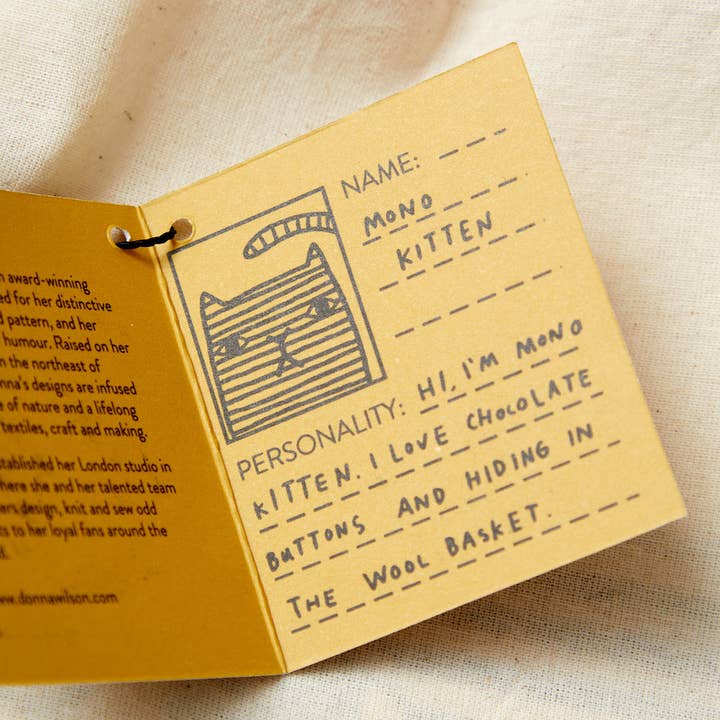 n award-winning
ed for her distinctive
d pattern, and her
humour. Raised on her
n the northeast of
nna's designs are infused
e of nature and a lifelong
textiles, craft and making.
stablished her London studio in
here she and her talented team
ers design, knit and sew odd
ts to her loyal fans around the
ww.donnawilson.com
NAME:
MONO
KITTEN
PERSONALITY: HI, I'M MONO
KITTEN. I LOVE CHOCOLATE
BUTTONS AND HIDING IN
THE WOOL BASKET.